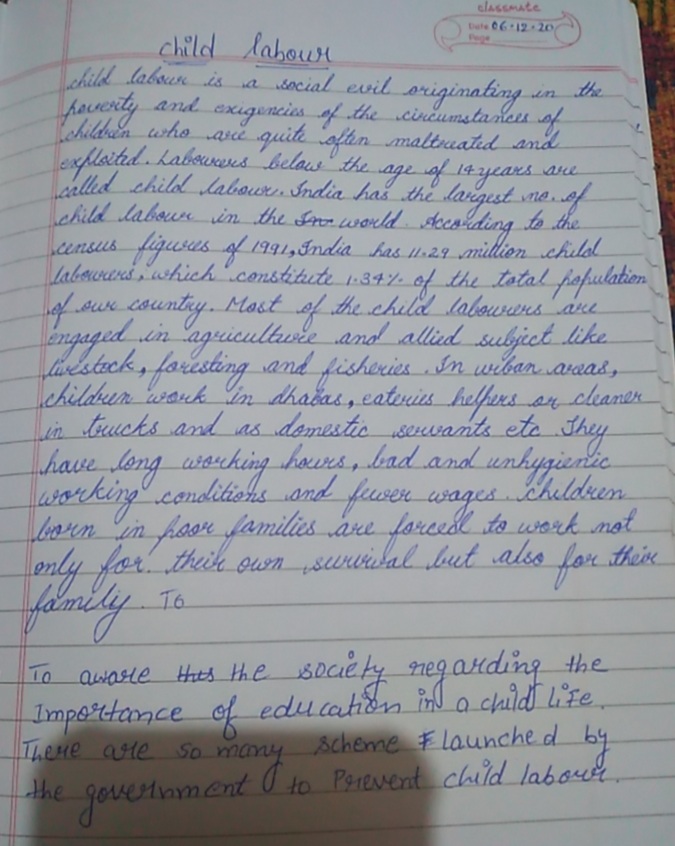 classmate
Date 06-12-20
Page
child labour
child labour is a social evil originating in the
poverty and exigencies of the circumstances of
children who are quite often maltreated and
exploited. Labourers below the age of 14 years are
called child labour. India has the largest no. of
child labour in the world. According to the
census figures of 1991, India has 11.29 million child
labourers, which constitute 1.34% of the total population
of our country. Most of the child labourers are
engaged in agriculture and allied subject like
livestock, foresting and fisheries. In urban areas,
children work in dhabas, eateries helpers or cleaner
in trucks and as domestic servants etc They
have long working hours, bad and unhygienic
working conditions and fewer wages. children
born in poor families are forced to work not
only for their own survival but also for their
family. To
To aware the society regarding the
Importance of education in a child life.
There are so many scheme launched by
the government to Prevent child labour.